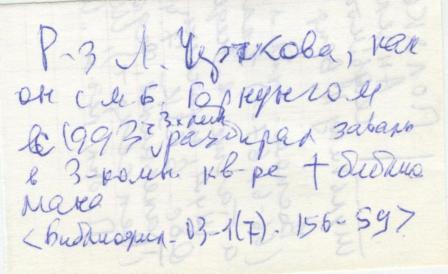 Р-з Л. Черткова, как
он с М.Б. Горнунгом
в 1993 г. 3 дня разбирал завалы
в 3-комн. кв-ре † библио
мана
<Библиофил. - 03-1(7). - 156-59>